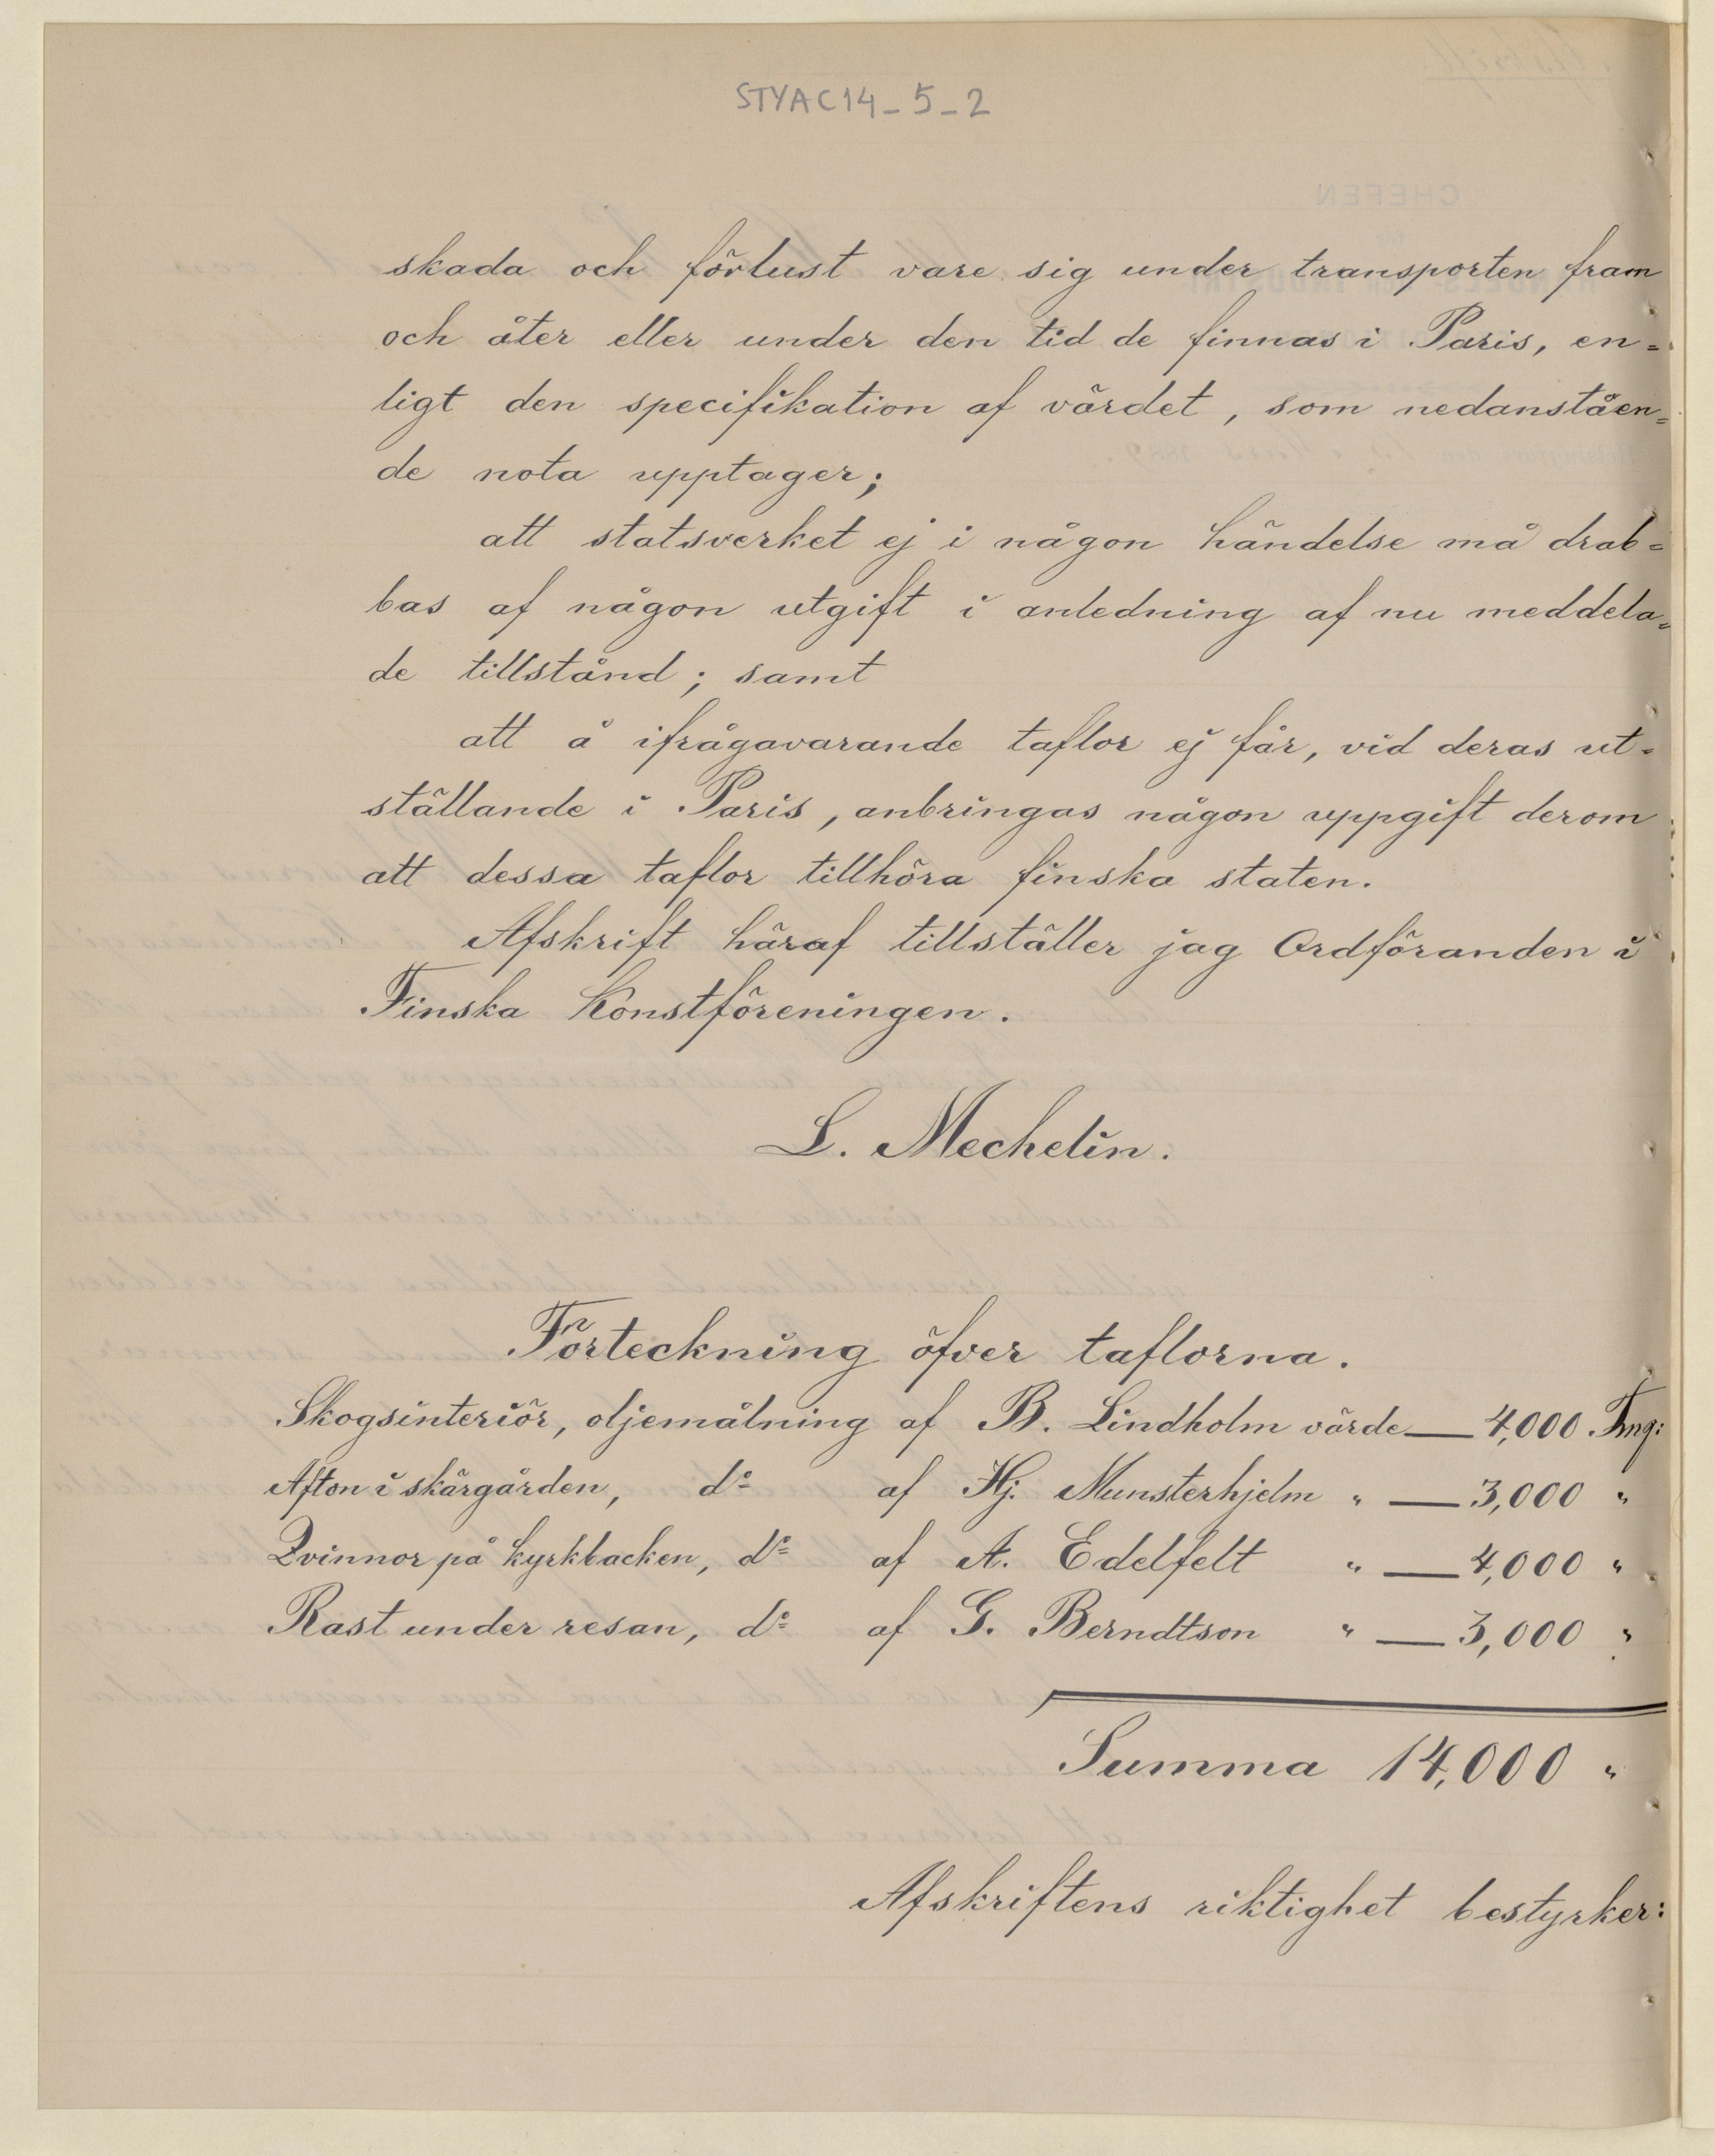 STYAC14_5_2
skada och förlust vare sig under transporten fram
och åter eller under den tid de finnas i Paris, en=
ligt den specifikation af värdet, som nedanståen=
de nota upptager;
att statsverket ej i någon händelse må drab=
bas af någon utgift i anledning af nu meddela=
de tillstånd; samt
att å ifrågavarande taflor ej får, vid deras ut=
ställande i Paris, anbringas någon uppgift derom
att dessa taflor tillhöra finska staten.
Afskrift häraf tillställer jag Ordföranden i
Finska Konstföreningen.
L. Mechelin.
Förteckning öfver taflorna.
Skogsinteriör, oljemålning af B. Lindholm värde — 4,000 Fmg:
Afton i skärgården, d:o af Hj. Munsterhjelm " — 3,000 "
Qvinnor på kyrkbacken, d:o af A. Edelfelt " — 4,000 "
Rast under resan, d:o af G. Berndtson " — 3,000 "
Summa 14,000 "
Afskriftens riktighet bestyrker: